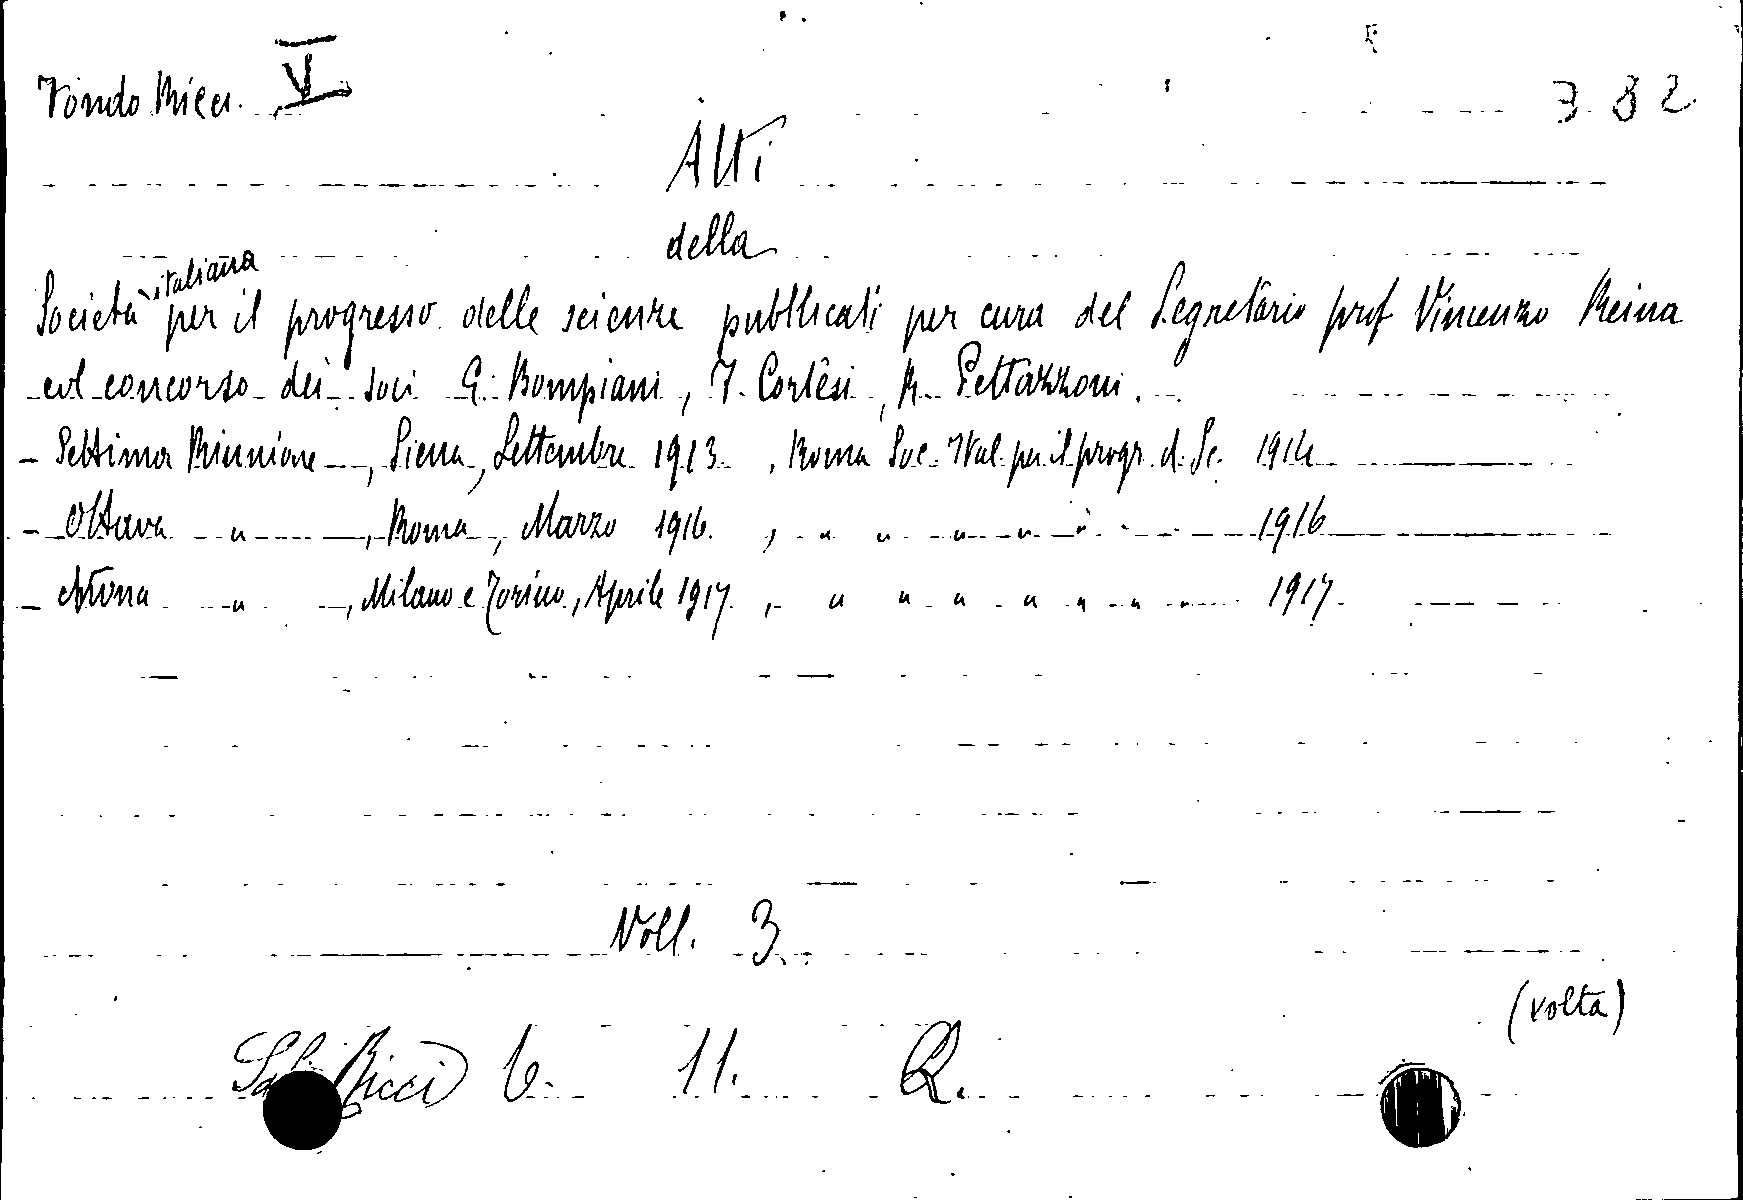 Fondo Ricci. V 382
Atti
della
Società italiana per il progresso delle scienze pubblicati per cura del Segretario prof Vincenzo Reina
col concorso dei soci G. Bompiani, F. Cortesi, R. Pettazzoni.
- Settima Riunione -, Siena, Settembre 1913, Roma Soc. Ital. per il progr. d. Sc. 1914
- Ottava " , Roma, Marzo 1916. , " " " " " 1916
- Nona " -, Milano e Torino, Aprile 1917, " " " " " " 1917.
Voll. 3.
(volta)
Ricci 6. 11. Q.